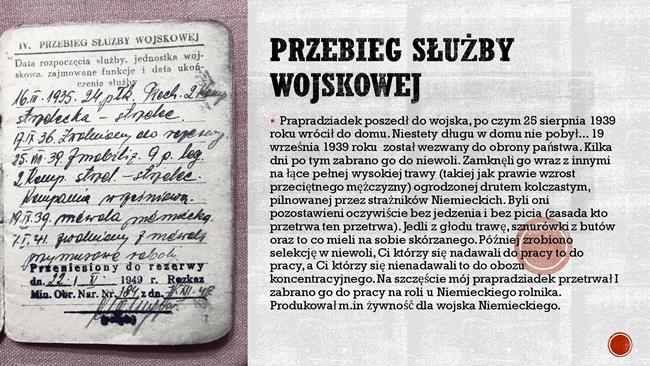 IV. PRZEBIEG SŁUŻBY WOJSKOWEJ
Data rozpoczęcia służby, jednostka woj-
skowa, zajmowane funkcje i data ukoń-
czenia służby
16.III.1935. 24 płk. Piech. 2
strzelecka - strzelec.
17.IX.36. Zwolniony do rezerwy.
25.VIII.39. Zmobiliz. 9 p. leg.
2 Komp. strzel - strzelec.
Kompania
19.IX.39. niewola niemiecka
7.I.41. zwolniony z niewoli
przymusowe roboty
Przeniesiony do rezerwy
dn. 22. 1949 r. Rozkaz
Min. Obr. Nar. Nr 184 z dn.
PRZEBIEG SŁUŻBY
WOJSKOWEJ
▪ Prapradziadek poszedł do wojska, po czym 25 sierpnia 1939
roku wrócił do domu. Niestety długu w domu nie pobył... 19
września 1939 roku został wezwany do obrony państwa. Kilka
dni po tym zabrano go do niewoli. Zamknęli go wraz z innymi
na łące pełnej wysokiej trawy (takiej jak prawie wzrost
przeciętnego mężczyzny) ogrodzonej drutem kolczastym,
pilnowanej przez strażników Niemieckich. Byli oni
pozostawieni oczywiście bez jedzenia i bez picia (zasada kto
przetrwa ten przetrwa). Jedli z głodu trawę, sznurówki z butów
oraz to co mieli na sobie skórzanego. Później zrobiono
selekcję w niewoli, Ci którzy się nadawali do pracy to do
pracy, a Ci którzy się nienadawali to do obozu
koncentracyjnego. Na szczęście mój prapradziadek przetrwał I
zabrano go do pracy na roli u Niemieckiego rolnika.
Produkował m.in żywność dla wojska Niemieckiego.